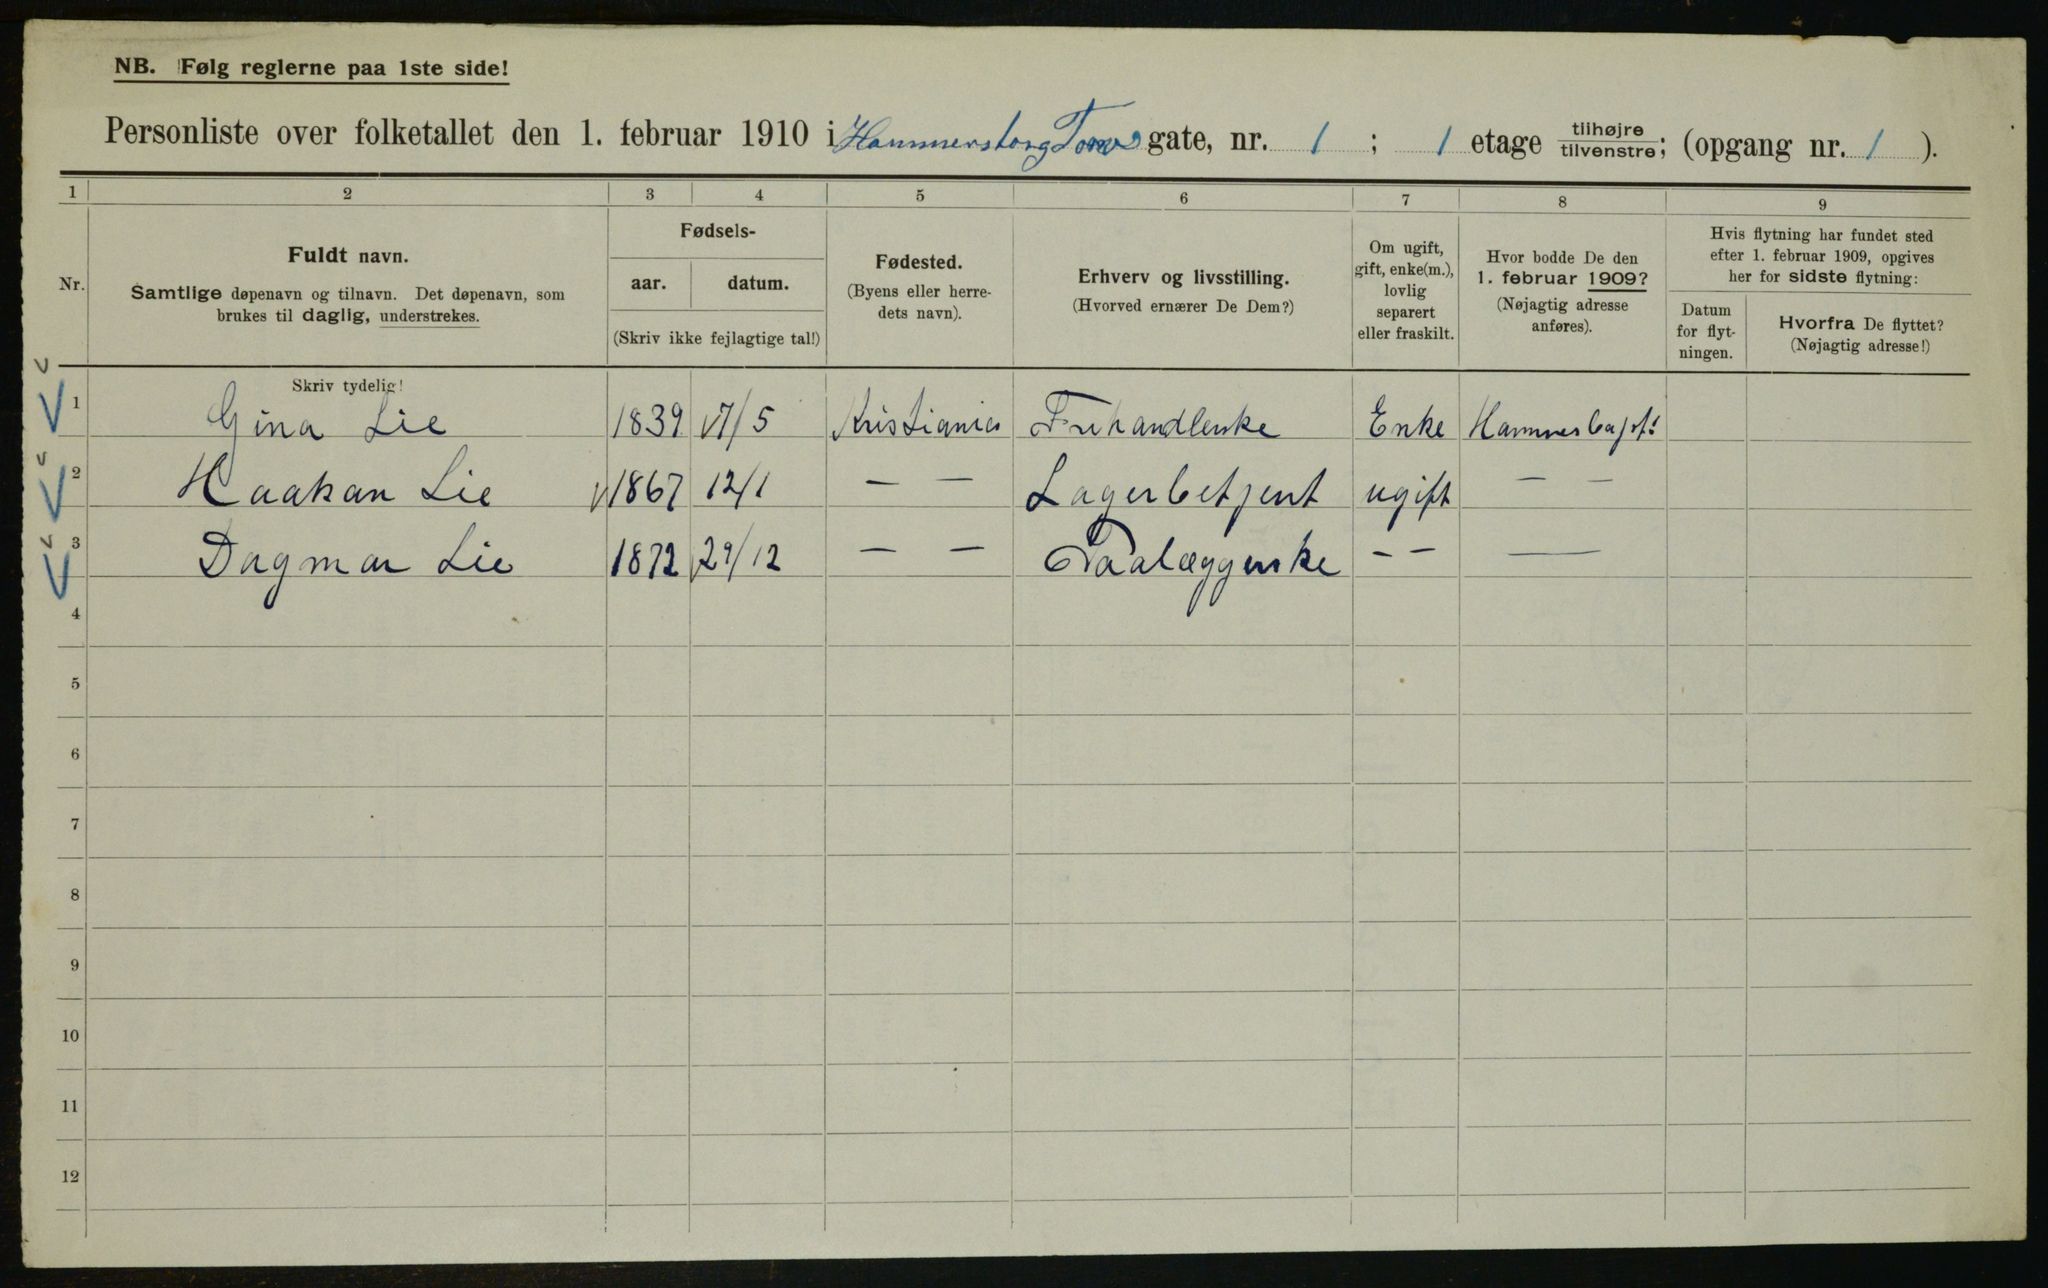 NB. Følg reglerne paa 1ste side!
Personliste over folketallet den 1. februar 1910 i Hammersborg Torv gate, nr. 1 ; 1 etage tilhøjre tilvenstre; (opgang nr. 1 ).
1 2 3 4 5 6 7 8 9
Nr.
Fuldt navn.
Samtlige døpenavn og tilnavn. Det døpenavn, som
brukes til daglig, understrekes.
Skriv tydelig!
Fødsels-
aar. datum.
(Skriv ikke fejlagtige tal!)
Fødested.
(Byens eller herre-
dets navn).
Erhverv og livsstilling.
(Hvorved ernærer De Dem?)
Om ugift,
gift, enke(m.),
lovlig
separert
eller fraskilt.
Hvor bodde De den
1. februar 1909?
(Nøjagtig adresse
anføres).
Hvis flytning har fundet sted
efter 1. februar 1909, opgives
her for sidste flytning:
Datum
for flyt-
ningen.
Hvorfra De flyttet?
(Nøjagtig adresse!)
1 Gina Lie 1839 17/5 Kristiania Enke
2 Haakan Lie 1867 12/1 — — Lagerbetjent ugift — —
3 Dagmar Lie 1872 29/12 — — Paalæggerske — — —
4
5
6
7
8
9
10
11
12